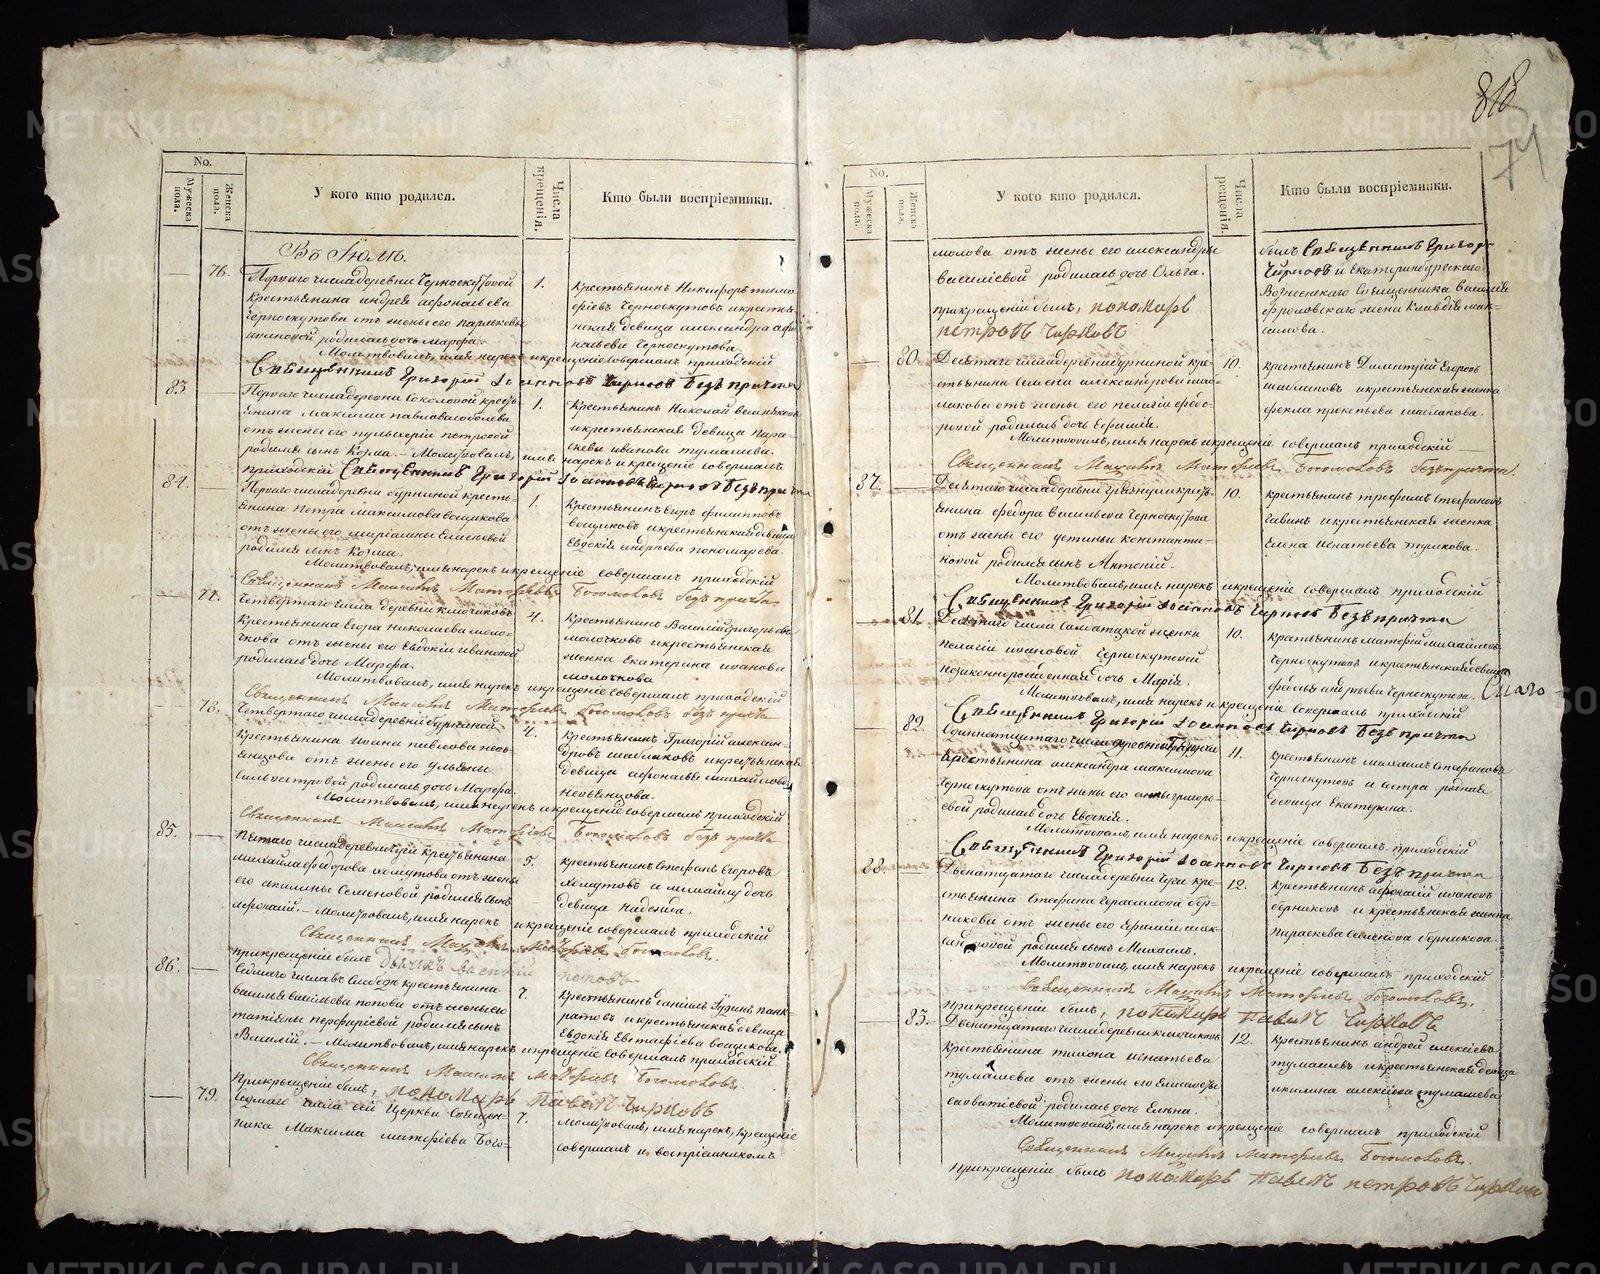 818
74
No.
Мужеска пола.
Женска пола.
У кого кто родился.
Числа крещенія.
Кто были воспріемники.
Въ Іюлѣ.
76.
Перваго числа деревни Черноскутовой
1.
крестьянинъ Никифоръ тимо-
крестьянина андрея афонасьева
фѣевъ Черноскутовъ и крестья-
черноскутова отъ жены его
нская девица александра афо-
родилась дочь марфа.
насьева Черноскутова.
Молитвовалъ, имя нарекъ и крещеніе совершалъ приходскій
Священникъ Григорій Іоанновъ Чирковъ Безъ причта
83.
Перваго числа деревни Соколовой кресть-
1.
Крестьянинъ Николай
янина Максима павлова соколова
и крестьянская девица пара-
отъ жены его пульхеріи петровой
скева иванова тумашева.
родился сынъ Козма. – Молитвовалъ, имя нарекъ и крещеніе совершалъ
приходскій Священникъ Григорій Іоанновъ Чирковъ Безъ причта
84.
Перваго числа деревни бурниной кресть-
1.
Крестьянинъ егоръ филипповъ
янина Петра Максимова вощикова
вощиковъ и крестьянская девица
отъ жены его маріамны Елисеевой
Евдокія андреева пономарева.
родился сынъ Козма.
Молитвовалъ, имя нарекъ и крещеніе совершалъ приходскій
Священникъ Максимъ Матфѣевъ Богомоловъ безъ причта
77.
Четвертаго числа деревни ключиковъ
4.
Крестьянинъ Василій григорьевъ
крестьянина Егора николаева моло-
молочковъ и крестьянская
чкова отъ жены его Евдокіи ивановой
женка Екатерина иванова
родилась дочь Марфа.
молочкова
Молитвовалъ, имя нарекъ и крещеніе совершалъ приходскій
Священникъ Максимъ Матфѣевъ Богомоловъ безъ причта
78.
Четвертаго числа деревни бурниной
4.
Крестьянинъ Григорій алексан-
крестьянина Іоана павлова невь-
дровъ шаблаковъ и крестьянская
янцова отъ жены его ульяны
девица афонасья михайлова
сильвестровой родилась дочь Марфа.
невьянцова.
Молитвовалъ, имя нарекъ и крещеніе совершалъ приходскій
Священникъ Максимъ Матфѣевъ Богомоловъ безъ причта
85.
Пятаго числа деревни Чуги крестьянина
5.
крестьянинъ Стефанъ Егоровъ
михайла федорова хомутова отъ жены
Хомутовъ и
дочь
его акилины Семеновой родился сынъ
девица надежда.
афонасій. – Молитвовалъ, имя нарекъ и крещеніе совершалъ приходскій
Священникъ Максимъ Матфѣевъ Богомоловъ.
прикрещеніи былъ дьячекъ василій поповъ
86.
Седмаго числа въ Слободѣ крестьянина
7.
крестьянинъ данилъ
панк-
василья васильева попова отъ жены его
ратовъ и крестьянская девица
татіяны порфиріевой родился сынъ
Евдокія Евстафіева вощикова.
Василій. – Молитвовалъ, имя нарекъ и крещеніе совершалъ приходскій
Священникъ Максимъ Матфѣевъ Богомоловъ.
Прикрещеніи былъ, пономарь Павелъ Чирковъ
79.
Седмаго числа сей Церкви Священ-
7.
Молитвовалъ, имя нарекъ, Крещеніе
ника Максима матфіева Бого-
совершалъ и воспріемникомъ
No.
Мужеска пола.
Женска пола.
У кого кто родился.
Числа крещенія.
Кто были воспріемники.
молова отъ жены его александры
былъ Священникъ Григорій
василіевой родилась дочь Ольга.
Чирковъ и Екатеринбургскаго
Вознесенскаго Священника василія
прикрещеніи былъ, пономарь
фроловскаго жена Клавдія мак-
петровъ Чирковъ
симова.
80.
Десятаго числа деревни бурниной кре-
10.
крестьянинъ Димитрій Егоровъ
стьянина Семена александрова шаб-
шаблаковъ и крестьянская женка
лакова отъ жены его пелагіи федо-
фекла прокопьева шаблакова.
ровой родилась дочь Евфимія.
Молитвовалъ, имя нарекъ и крещеніе совершалъ приходскій
Священникъ Максимъ Матфѣевъ Богомоловъ безъ причта.
87.
Десятаго числа деревни
кресть-
10.
крестьянинъ трофимъ Стефановъ
янина федора васильева Черноскутова
Савинъ и крестьянская женка
отъ жены его устиньи константи-
Елена игнатьева тушкова.
новой родился сынъ Антоній.
Молитвовалъ, имя нарекъ и крещеніе совершалъ приходскій
Священникъ Григорій Іоанновъ Чирковъ Безъ причта
81.
Десятаго числа Салдатской женки
10.
крестьянинъ матфій михайловъ
пелагіи ивановой Черноскутовой
Черноскутовъ и крестьянская девица
незаконнорожденная дочь Марія.
федосья андреева Черноскутова.
Молитвовалъ, имя нарекъ и крещеніе совершалъ приходскій
Священникъ Григорій Іоанновъ Чирковъ Безъ причта
82.
Одиннатцатаго числа деревни
11.
Крестьянинъ михаилъ Стефановъ
Крестьянина александра максимова
Черноскутовъ и сестра родная
Черноскутова отъ жены его анны григорь-
девица Екатерина.
евой родилась дочь Евдокія.
Молитвовалъ, имя нарекъ и крещеніе совершалъ приходскій
Священникъ Григорій Іоанновъ Чирковъ Безъ причта
88.
Двенатцатаго числа деревни Чуги кре-
12.
Крестьянинъ афонасій ивановъ
стьянина Стефана Герасимова бер-
берниковъ и крестьянская женка
никова отъ жены его Ефиміи алек-
параскева Семенова берникова.
сандровой родился сынъ Михаилъ.
Молитвовалъ, имя нарекъ и крещеніе совершалъ приходскій
Священникъ Максимъ Матфѣевъ Богомоловъ.
прикрещеніи былъ, пономарь Павелъ Чирковъ
83.
Двенатцатаго числа деревни ключиковъ
12.
Крестьянинъ андрей алексіевъ
крестьянина тихона игнатьева
тумашевъ и крестьянская девица
тумашева отъ жены его
акилина алексіева тумашева
савватіевой родилась дочь Елена.
Молитвовалъ, имя нарекъ и крещеніе совершалъ приходскій
Священникъ Максимъ Матфѣевъ Богомоловъ.
прикрещеніи былъ пономарь Павелъ петровъ Чирковъ
METRIKI.GASO-URAL.RU